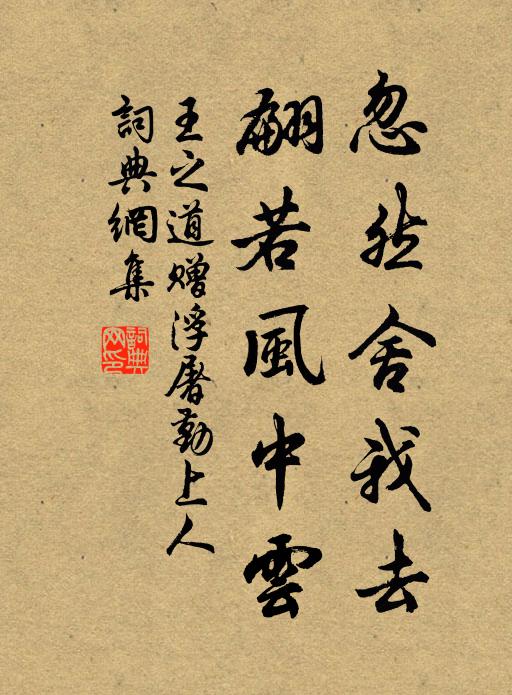 忽然舍我去
翩若風中雲
王之道贈浮屠勤上人
詞典網集
詞典网印